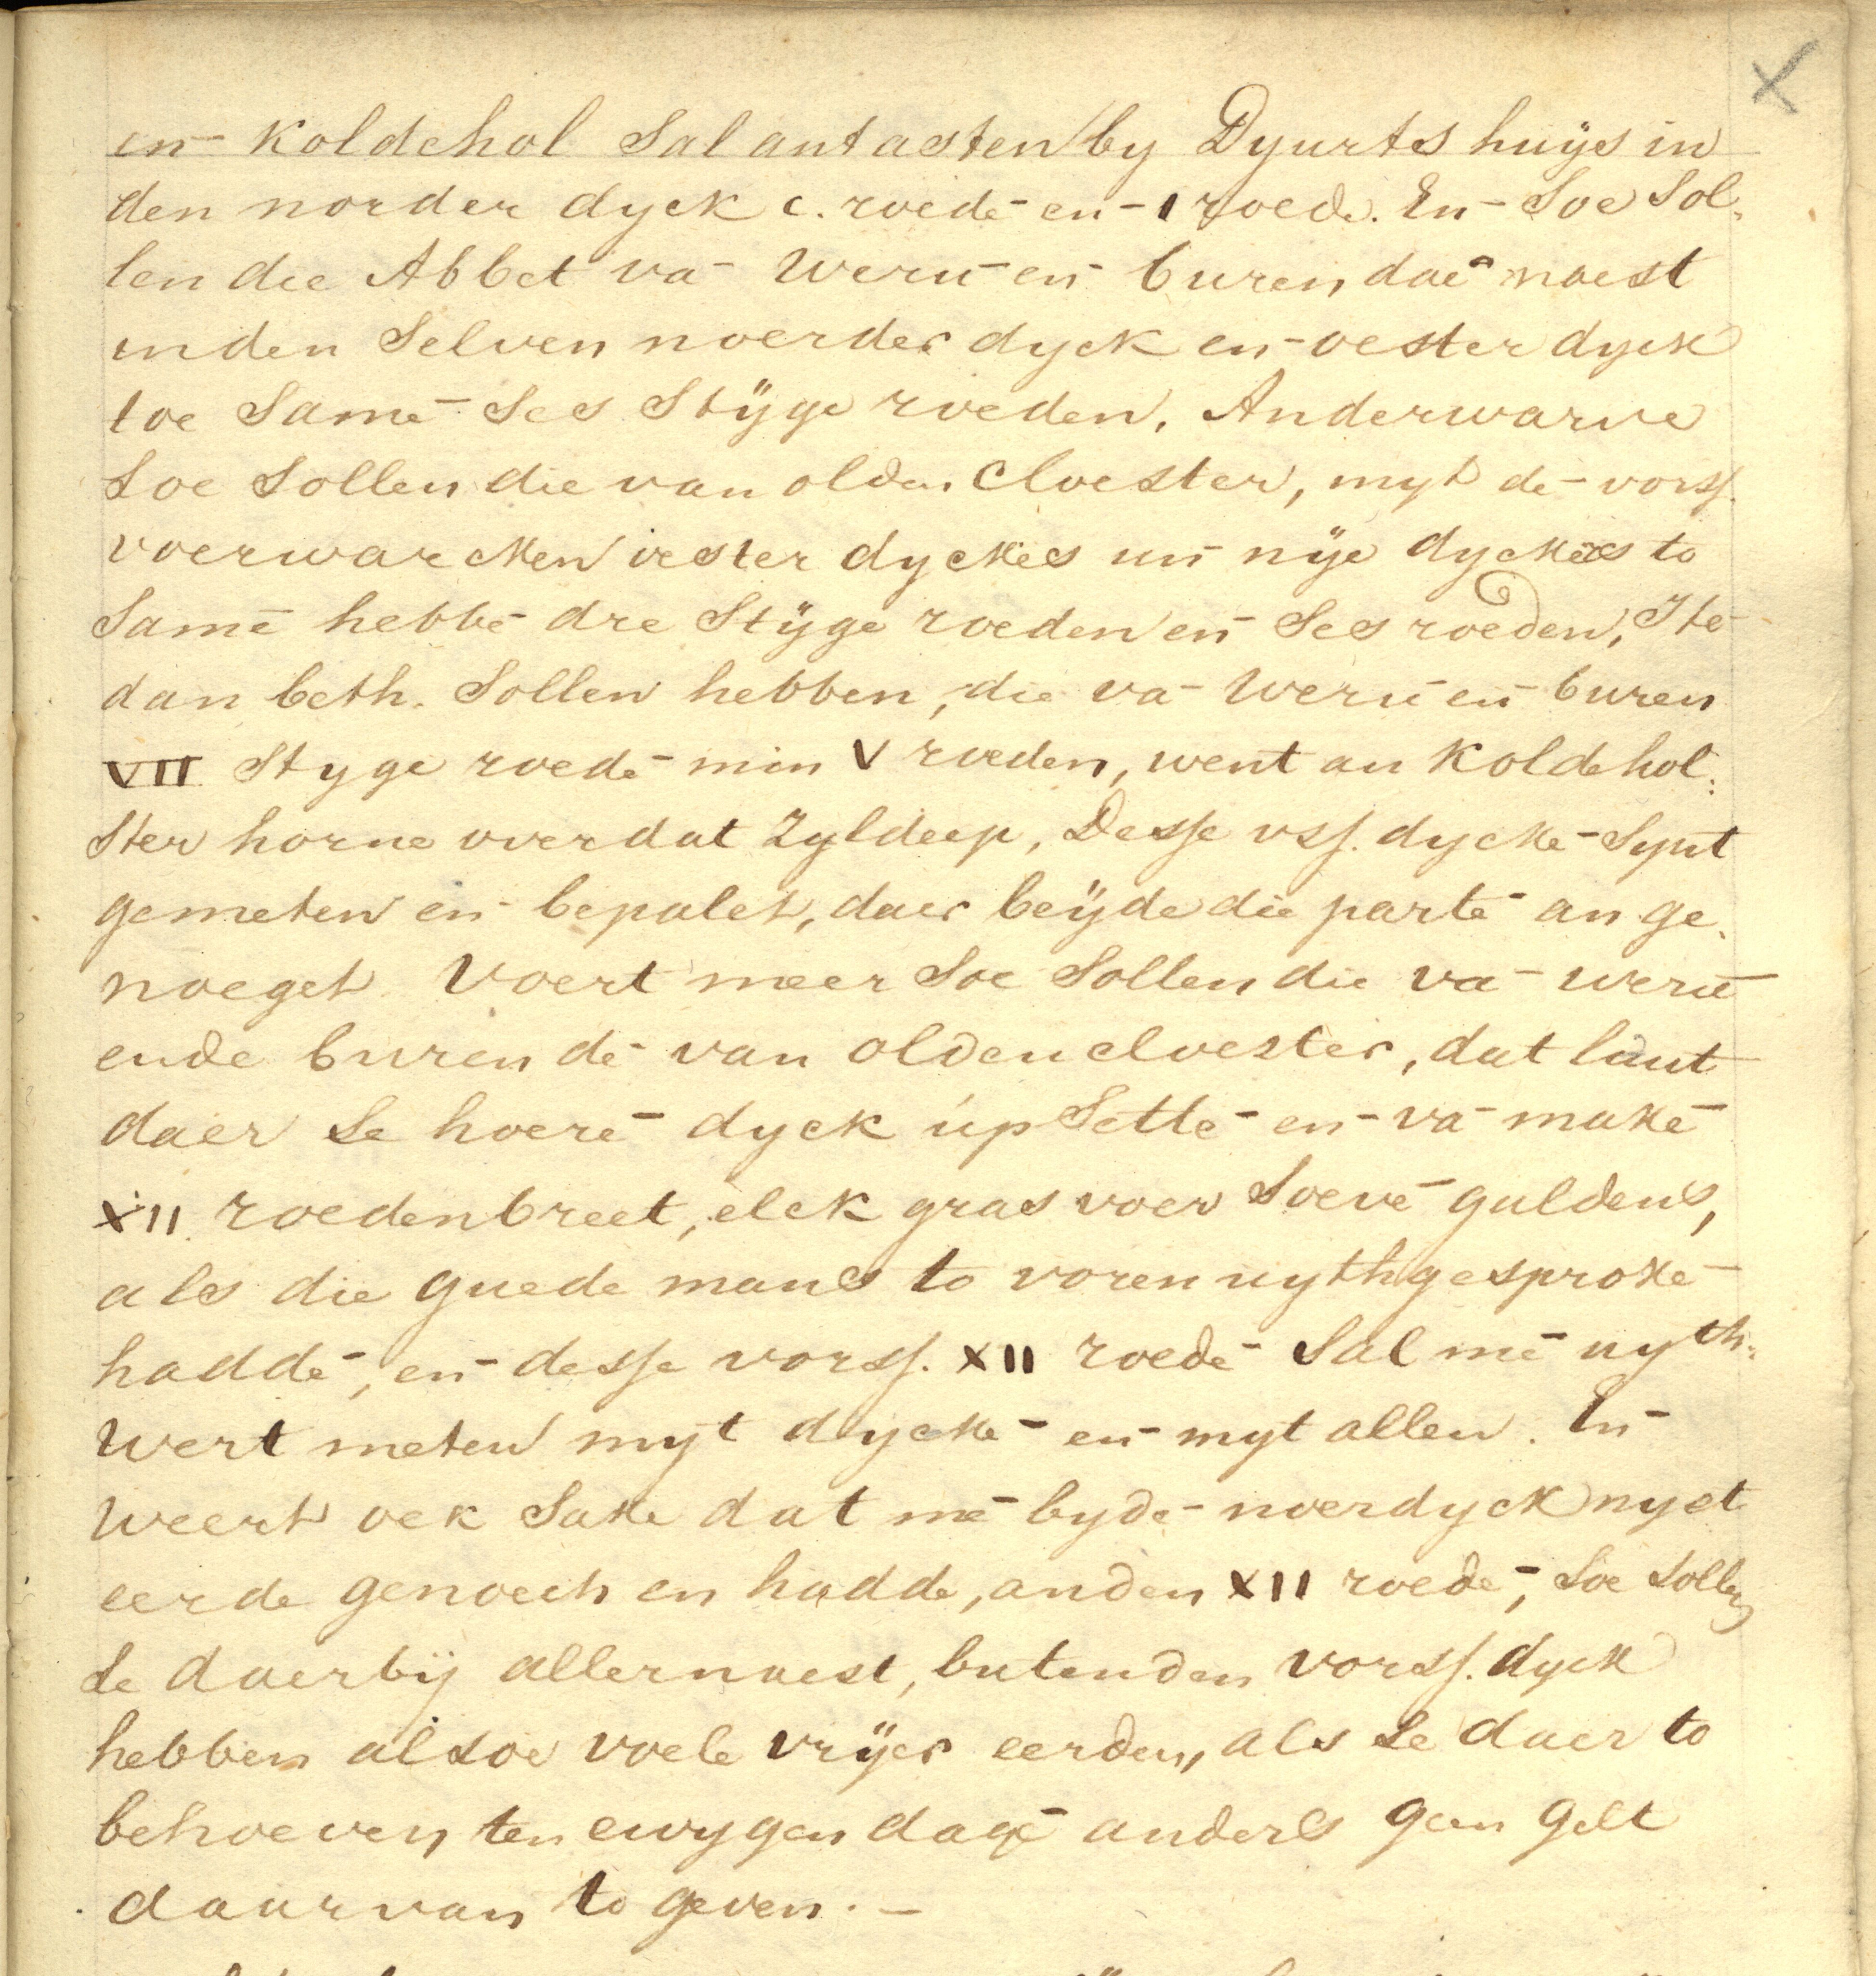 en- Koldehol Sal antasten by Dyurts huÿs in
den norder dyck c. roede- en- 1 roede. En- Soe Sol-
len die Abbet va- Weru- en- buren dae- naest
inden Selven noerder dyck en- oester dyck
toe Same- Ses Stÿge roeden, Anderwarve
Soe Sollen die van olden Cloester, myt de- vorsſ.
voerwarcken oester dyckes un- nÿe dyckes to
Same- hebbe- dre Stÿge roeden en- Ses roeden, Ite-
dan beth. Sollen hebben, die va- Weru- en- buren
VII Styge roede- min V roeden, went an Koldehol-
Ster horne over dat Zyldeep, Desse vsſ. dycke- Synt
gemeten en- bepalet, daer beÿde die parte- an ge-
noeget Voert meer Soe Sollen die va- weru-
ende buren de- van olden cloester, dat lant
daer Se hoere- dyck up Sette- en- va- make-
XII roeden breet, elck gras voer Soeve- guldens,
als die guede mans to voren uythgesproke-
hadde-, en- desse vorsſ. XII roede- Sal me- uyth-
Wert meten myt dycke- en- myt allen. En-
Weert oek Sake dat me- byde- noerdyck nyet
eerde genoech en hadde, anden XII roede-, Soe Sollen
Se daerbÿ allernaest, butenden vorsſ. dyck
hebben alsoe voele vrÿer eerden, als Se daer to
behoeven ten ewygen dage- anders geen gelt
daarvan to geven. -